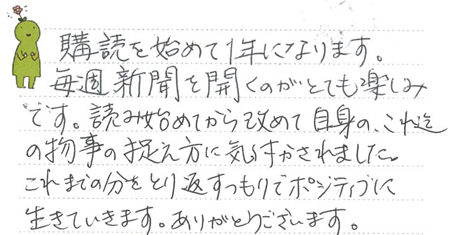 購読を始めて1年になります。
毎週新聞を開くのがとても楽しみ
です。読み始めてから改めて自身の、これ迄
の物事の捉え方に気付かされました。
これまでの分をとり返すつもりでポジティブに
生きていきます。ありがとうございます。